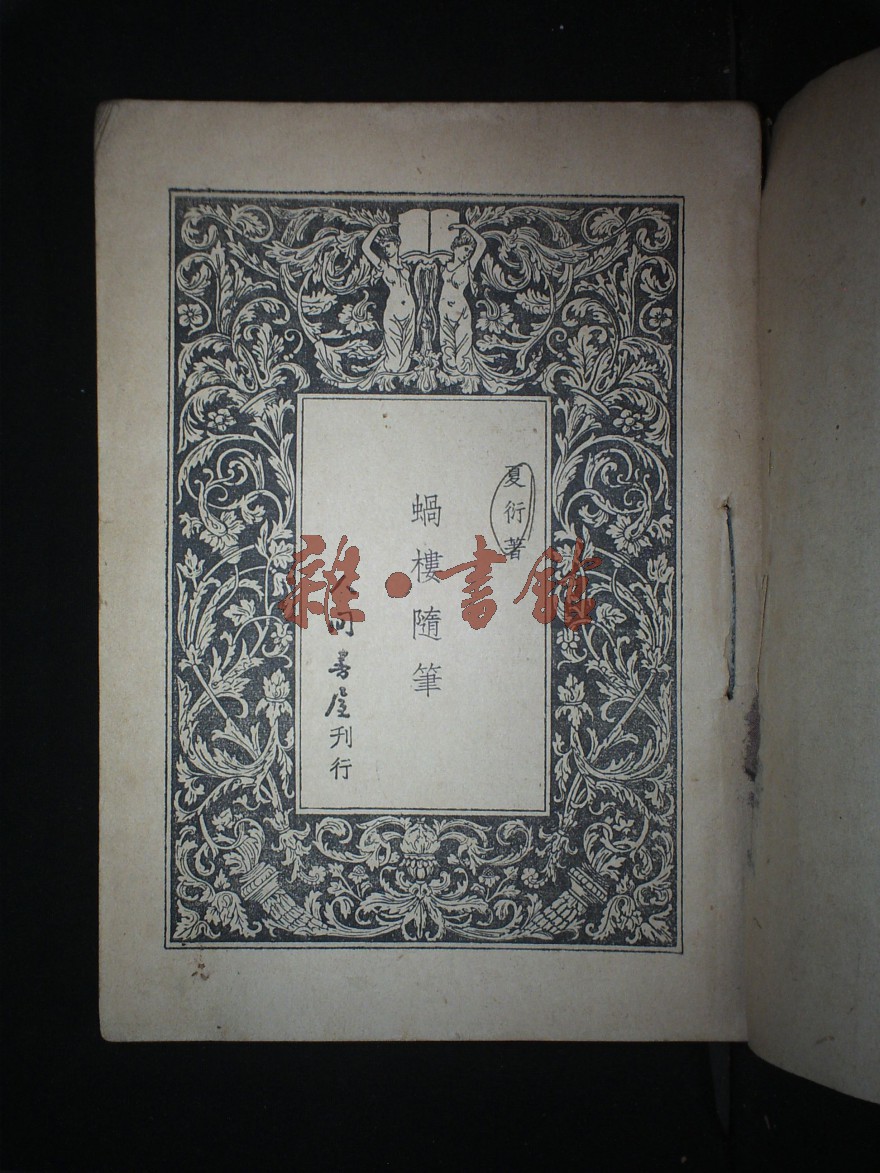 夏衍著
蝸樓隨筆
人间書屋刊行
雜·書館